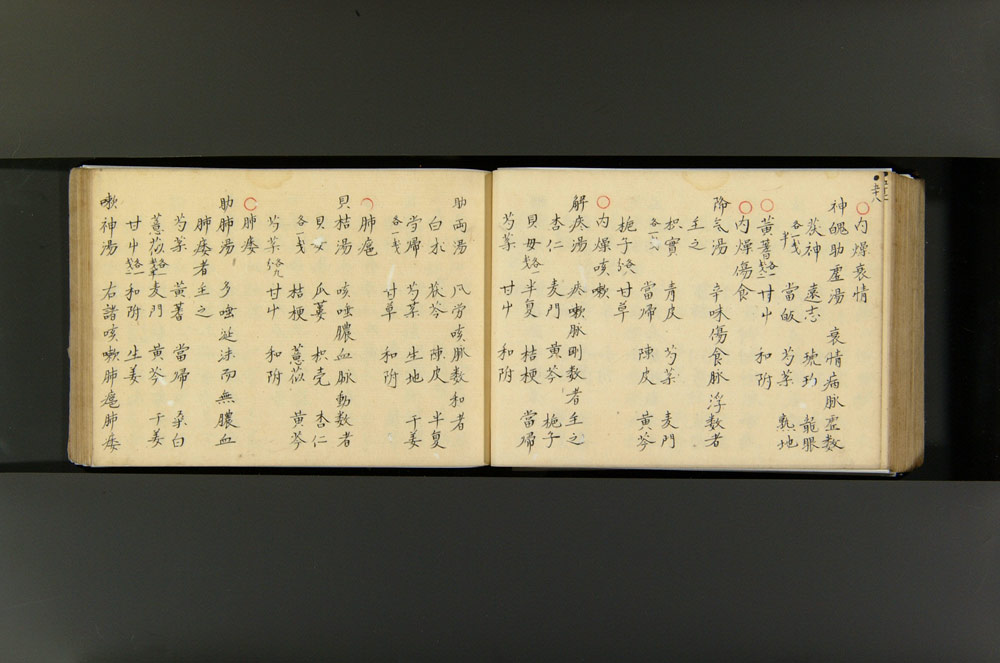 内燥哀情
神魄助虚湯 哀情病脉虚数
茯神 遠志 琥珀 龍眼
各一戔半 當皈 芍薬 乹地
黄蓍 各二戔 甘屮 和附
内燥傷食
降气湯 辛味傷食脉浮数者
主之
枳實 青皮 芍薬 麦門
各一戔 當帰 陳皮 黄芩
梔子 六分 甘草
内燥咳嗽
解痰湯 痰嗽脉剛数者主之
杏仁 麦門 黄芩 梔子
貝母 各一戔 半夏 桔梗 當帰
芍薬 甘屮 和附
助両湯 八労咳脉数和者
白朮 茯苓 陳皮 半夏
當帰 芍薬 生地 干姜
各一戔 甘草 和附
肺癰
貝桔湯 咳唾膿血脉動数者
貝母 瓜蔞 枳壳 杏仁
各一戔 桔梗 薏苡 黄芩
芍薬 各九分 甘屮 和附
肺痿
助肺湯 多唾涎沫而無膿血
肺痿者主之
芍薬 黄蓍 當帰 桑白
薏苡 麦門 黄芩 干姜
甘屮 各一戔 和附 生姜
嗽神湯 右諸咳嗽肺癰肺痿